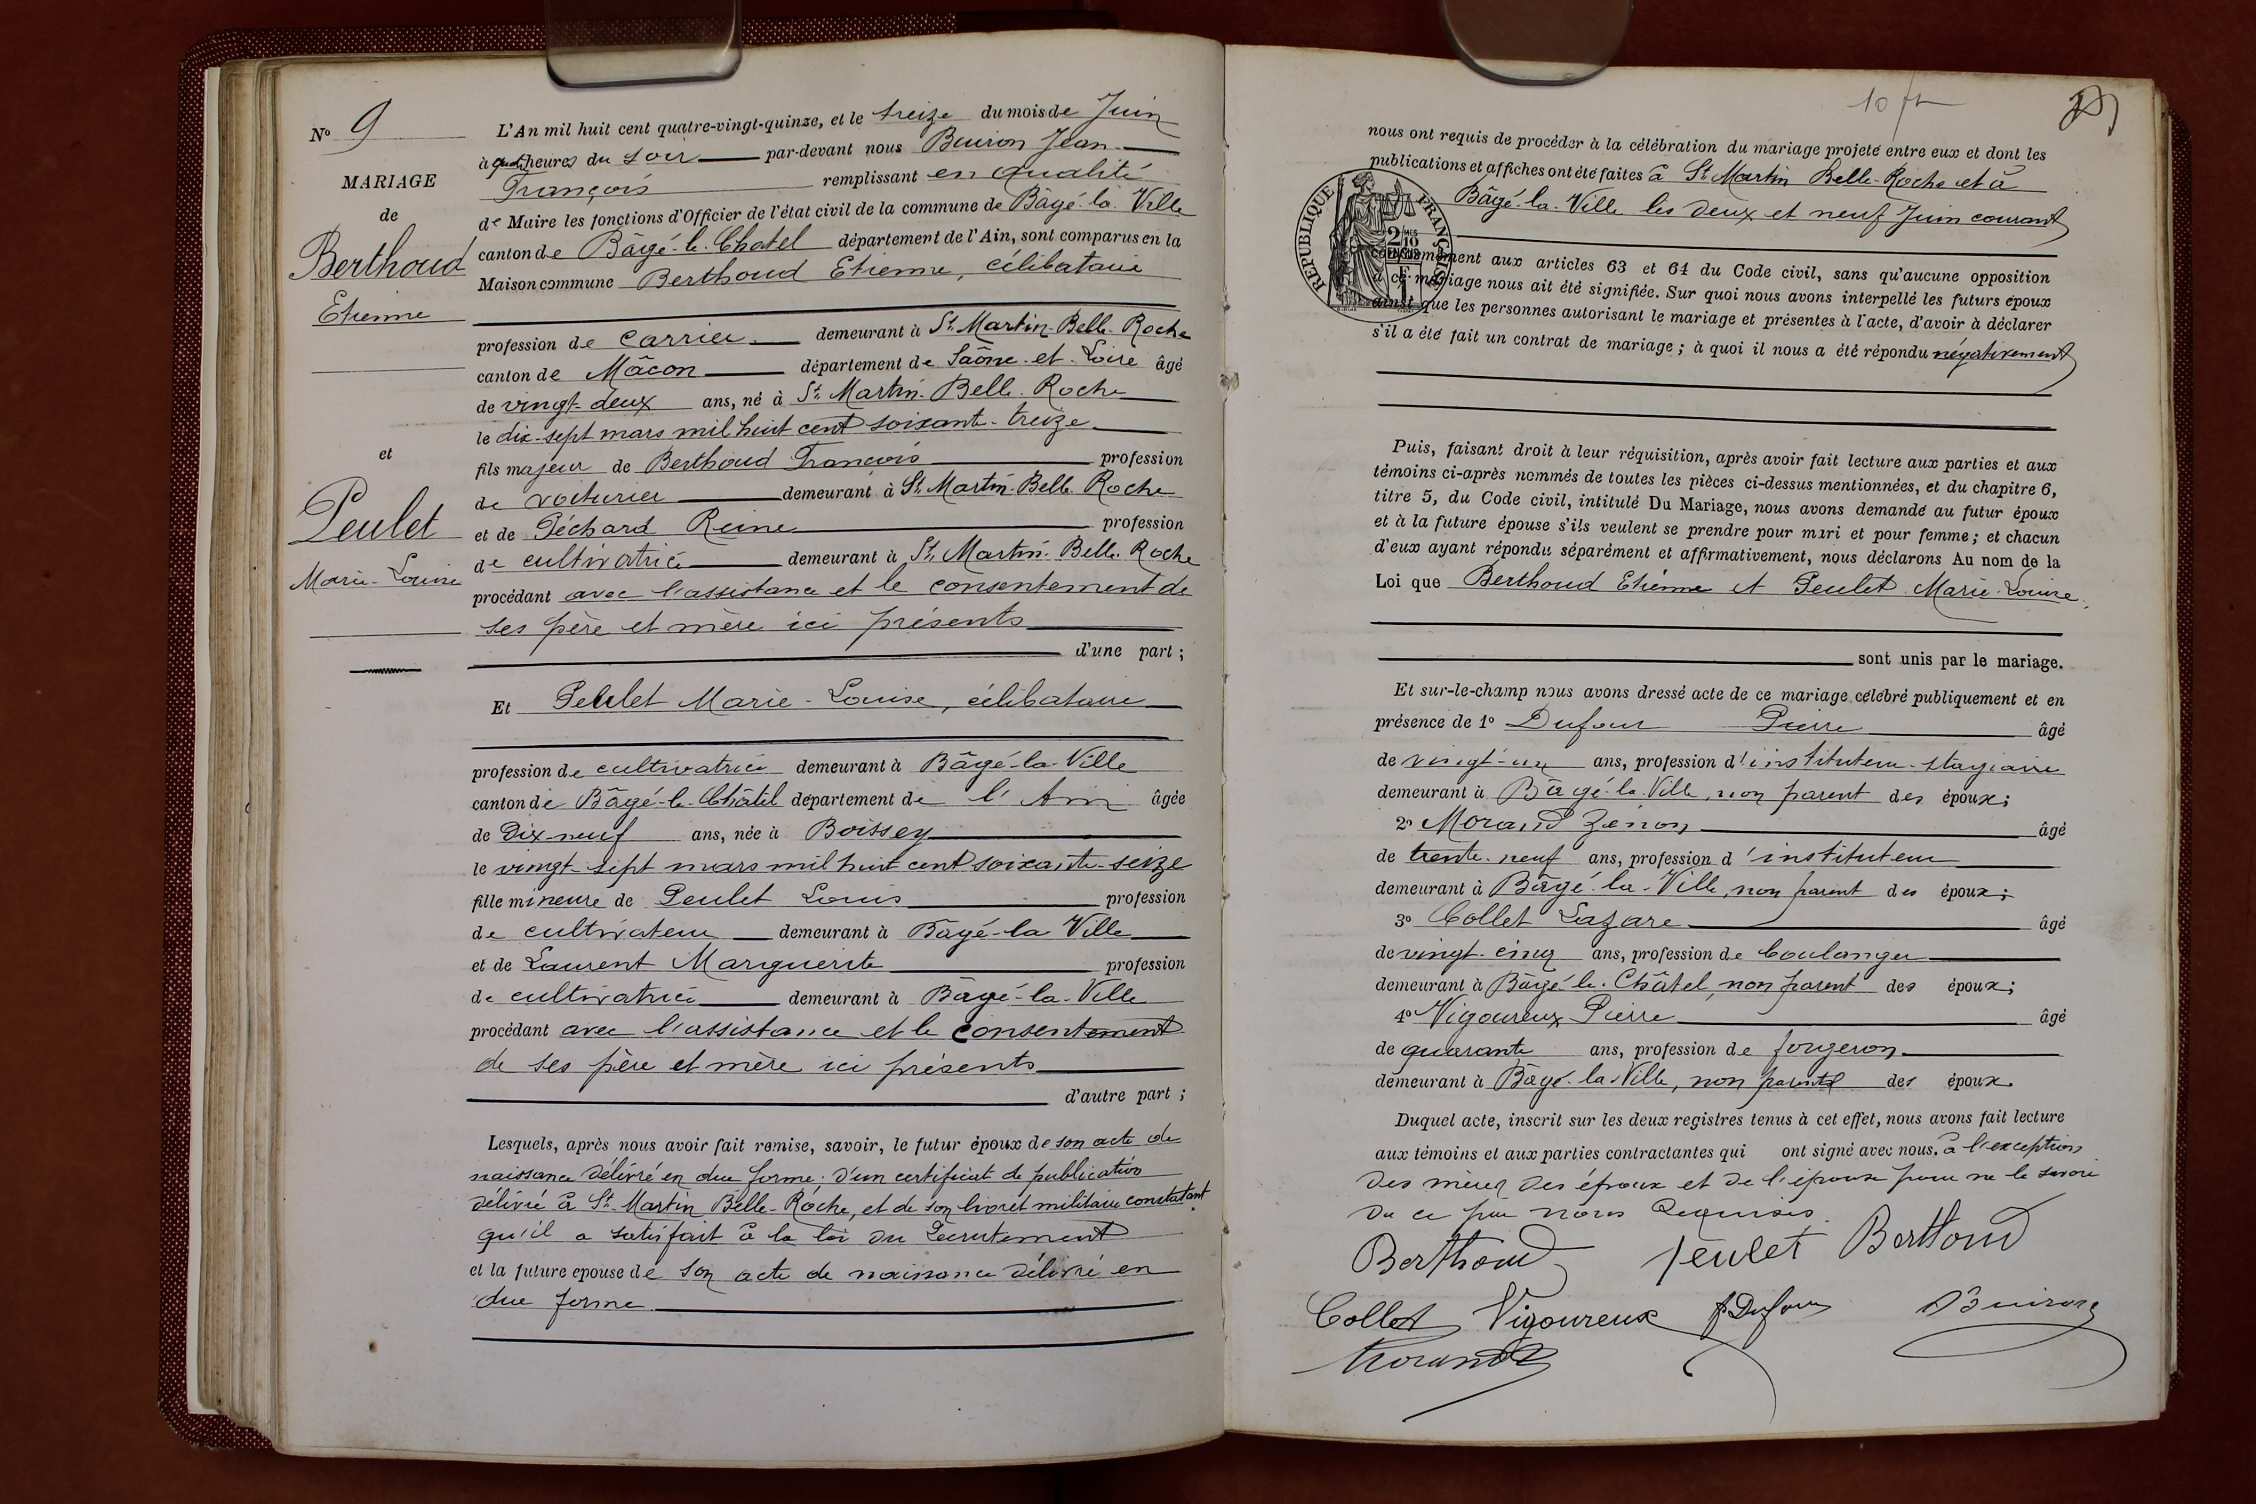 Nº 9
MARIAGE
de
Berthoud
Etienne
et
Peulet
Marie-Louise
L'An mil huit cent quatre-vingt-quinze, et le treize du mois de Juin
à quatre heures du soir par-devant nous Buiron Jean
François remplissant en qualité
de Maire les fonctions d'Officier de l'état civil de la commune de Bâgé-la-Ville
canton de Bâgé-le-Chatel département de l'Ain, sont comparus en la
Maison commune Berthoud Etienne, célibataire
profession de carrier demeurant à St Martin-Belle-Roche
canton de Mâcon département de Saône-et-Loire âgé
de vingt-deux ans, né à St Martin-Belle-Roche
le dix-sept mars mil huit cent soixante-treize
fils majeur de Berthoud François profession
de voiturier demeurant à St Martin-Belle-Roche
et de Péchard Reine profession
de cultivatrice demeurant à St Martin-Belle-Roche
procédant avec l'assistance et le consentement de
ses père et mère ici présents
d'une part ;
Et Peulet Marie-Louise, célibataire
profession de cultivatrice demeurant à Bâgé-la-Ville
canton de Bâgé-le-Châtel département de l'Ain âgée
de Dix-neuf ans, née à Boissey
le vingt-sept mars mil huit cent soixante-seize
fille mineure de Peulet Louis profession
de cultivateur demeurant à Bâgé-la-Ville
et de Laurent Marguerite profession
de cultivatrice demeurant à Bâgé-la-Ville
procédant avec l'assistance et le consentement
de ses père et mère ici présents
d'autre part ;
Lesquels, après nous avoir fait remise, savoir, le futur époux de son acte de
naissance délivré en due forme. D'un certificat de publication
délivré à St Martin Belle-Roche, et de son livret militaire constatant
qu'il a satisfait à la loi du Recrutement
et la future epouse de son acte de naissance délivré en
due forme
10
nous ont requis de procéder à la célébration du mariage projeté entre eux et dont les
publications et affiches ont été faites à St Martin Belle-Roche et à
Bâgé-la-Ville les deux et neuf Juin courant
RÉPUBLIQUE FRANÇAISE
2/10
conformément aux articles 63 et 64 du Code civil, sans qu'aucune opposition
à ce mariage nous ait été signifiée. Sur quoi nous avons interpellé les futurs époux
ainsi que les personnes autorisant le mariage et présentes à l'acte, d'avoir à déclarer
s'il a été fait un contrat de mariage ; à quoi il nous a été répondu négativement
Puis, faisant droit à leur réquisition, après avoir fait lecture aux parties et aux
témoins ci-après nommés de toutes les pièces ci-dessus mentionnées, et du chapitre 6,
titre 5, du Code civil, intitulé Du Mariage, nous avons demandé au futur époux
et à la future épouse s'ils veulent se prendre pour mari et pour femme ; et chacun
d'eux ayant répondu séparément et affirmativement, nous déclarons Au nom de la
Loi que Berthoud Etienne et Peulet Marie-Louise
sont unis par le mariage.
Et sur-le-champ nous avons dressé acte de ce mariage célébré publiquement et en
présence de 1º Dufour Pierre âgé
de vingt-un ans, profession d'instituteur-stagiaire
demeurant à Bâgé-la-Ville, non parent des époux ;
2º Morand Zénon âgé
de trente-neuf ans, profession d'instituteur
demeurant à Bâgé-la-Ville, non parent des époux ;
3º Collet Lazare âgé
de vingt-cinq ans, profession de boulanger
demeurant à Bâgé-le-Châtel, non parent des époux ;
4º Vigoureux Pierre âgé
de quarante ans, profession de forgeron
demeurant à Bâgé-la-Ville, non parent des époux.
Duquel acte, inscrit sur les deux registres tenus à cet effet, nous avons fait lecture
aux témoins et aux parties contractantes qui ont signé avec nous, à l'exception
des mères des époux et de l'épouse pour ne le savoir
de ce par nous Requises
Berthoud Peulet Berthoud
Collet Vigoureux P. Dufour Buiron
Morand